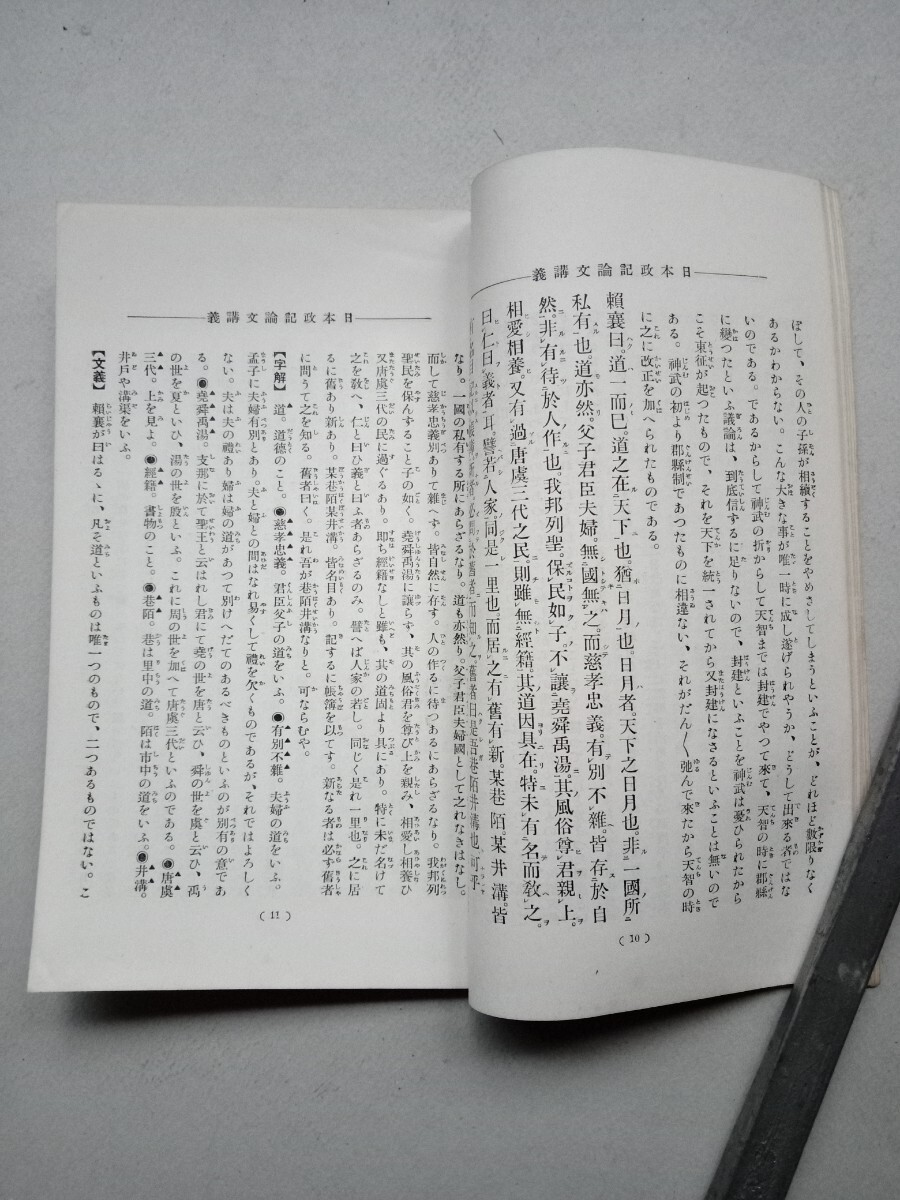 日本政記論文講義
ぼして、その人の子孫が相續することをやめさしてしまうといふことが、どれほど數限りなく
あるかわからない。こんな大きな事が唯一時に成し遂げられやうか、どうして出來る者ではな
いのである。であるからして神武の折からして天智までは封建でやつて來て、天智の時に郡縣
に變つたといふ議論は、到底信するに足りないので、封建といふことを神武は憂ひられたから
こそ東征が起つたもので、それを天下を統一されてから又封建になさるといふことは無いので
ある。神武の初より郡縣制であつたものに相違ない、それがだん〱弛んで來たから天智の時
に之に改正を加へられたものである。
賴襄曰。道一而巳。道之在天下也。猶日月也。日月者。天下之日月也。非一國所
私有也。道亦然。父子君臣夫婦。無國無之。而慈孝忠義。有別不雜。皆存於自
然。非有待於人作也。我邦列聖。保民如子。不讓堯舜禹湯。其風俗尊君親上。
相愛相養。又有過唐虞三代之民。則雖無經籍。其道因具在。特未有名而敎之。
曰仁曰義者耳。譬若人家。同是一里也。而居之有舊有新。某巷陌。某井溝。皆
(10)
日本政記論文講義
なり。一國の私有する所にあらざるなり。道も亦然り。父子君臣夫婦國として之れなきはなし。
而して慈孝忠義別ありて雜へず。皆自然に存す。人の作るに待つあるにあらざるなり。我邦列
聖民を保んすること子の如く。堯舜禹湯に讓らず、其の風俗君を尊び上を親み、相愛し相養ひ
又唐虞三代の民に過ぐるあり。即ち經籍なしと雖も、其の道固より具にあり。特に未だ名けて
之を敎へ、仁と曰ひ義と曰ふ者あらざるのみ。譬へば人家の若し。同じく是れ一里也。之に居
るに舊あり新あり。某巷陌某井溝。皆名目あり。記するに帳簿を以てす。新なる者は必す舊者
に問うて之を知る。舊者曰く。是れ吾が巷陌井溝なりと。可ならむや。
【字解】 道。道德のこと。◉慈孝忠義。君臣父子の道をいふ。◉有別不雜。夫婦の道をいふ。
孟子に夫婦有別とあり。夫と婦との間はなれ易くして禮を欠くものであるが、それではよろしく
ない。夫は夫の禮あり婦は婦の道があつて別けへだてのあるべきものといふのが別有の意であ
る。◉堯舜禹湯。支那に於て聖王と云はれし君にて堯の世を唐と云ひ、舜の世を虞と云ひ、禹
の世を夏といひ、湯の世を殷といふ。これに周の世を加へて唐虞三代といふのである。◉唐虞
三代。上を見よ。◉經籍。書物のこと。◉巷陌。巷は里中の道。陌は市中の道をいふ。◉井溝。
井戸や溝渠をいふ。
【文義】 賴襄が曰はるゝに、凡そ道といふものは唯一つのもので、二つあるものではない。こ
(11)